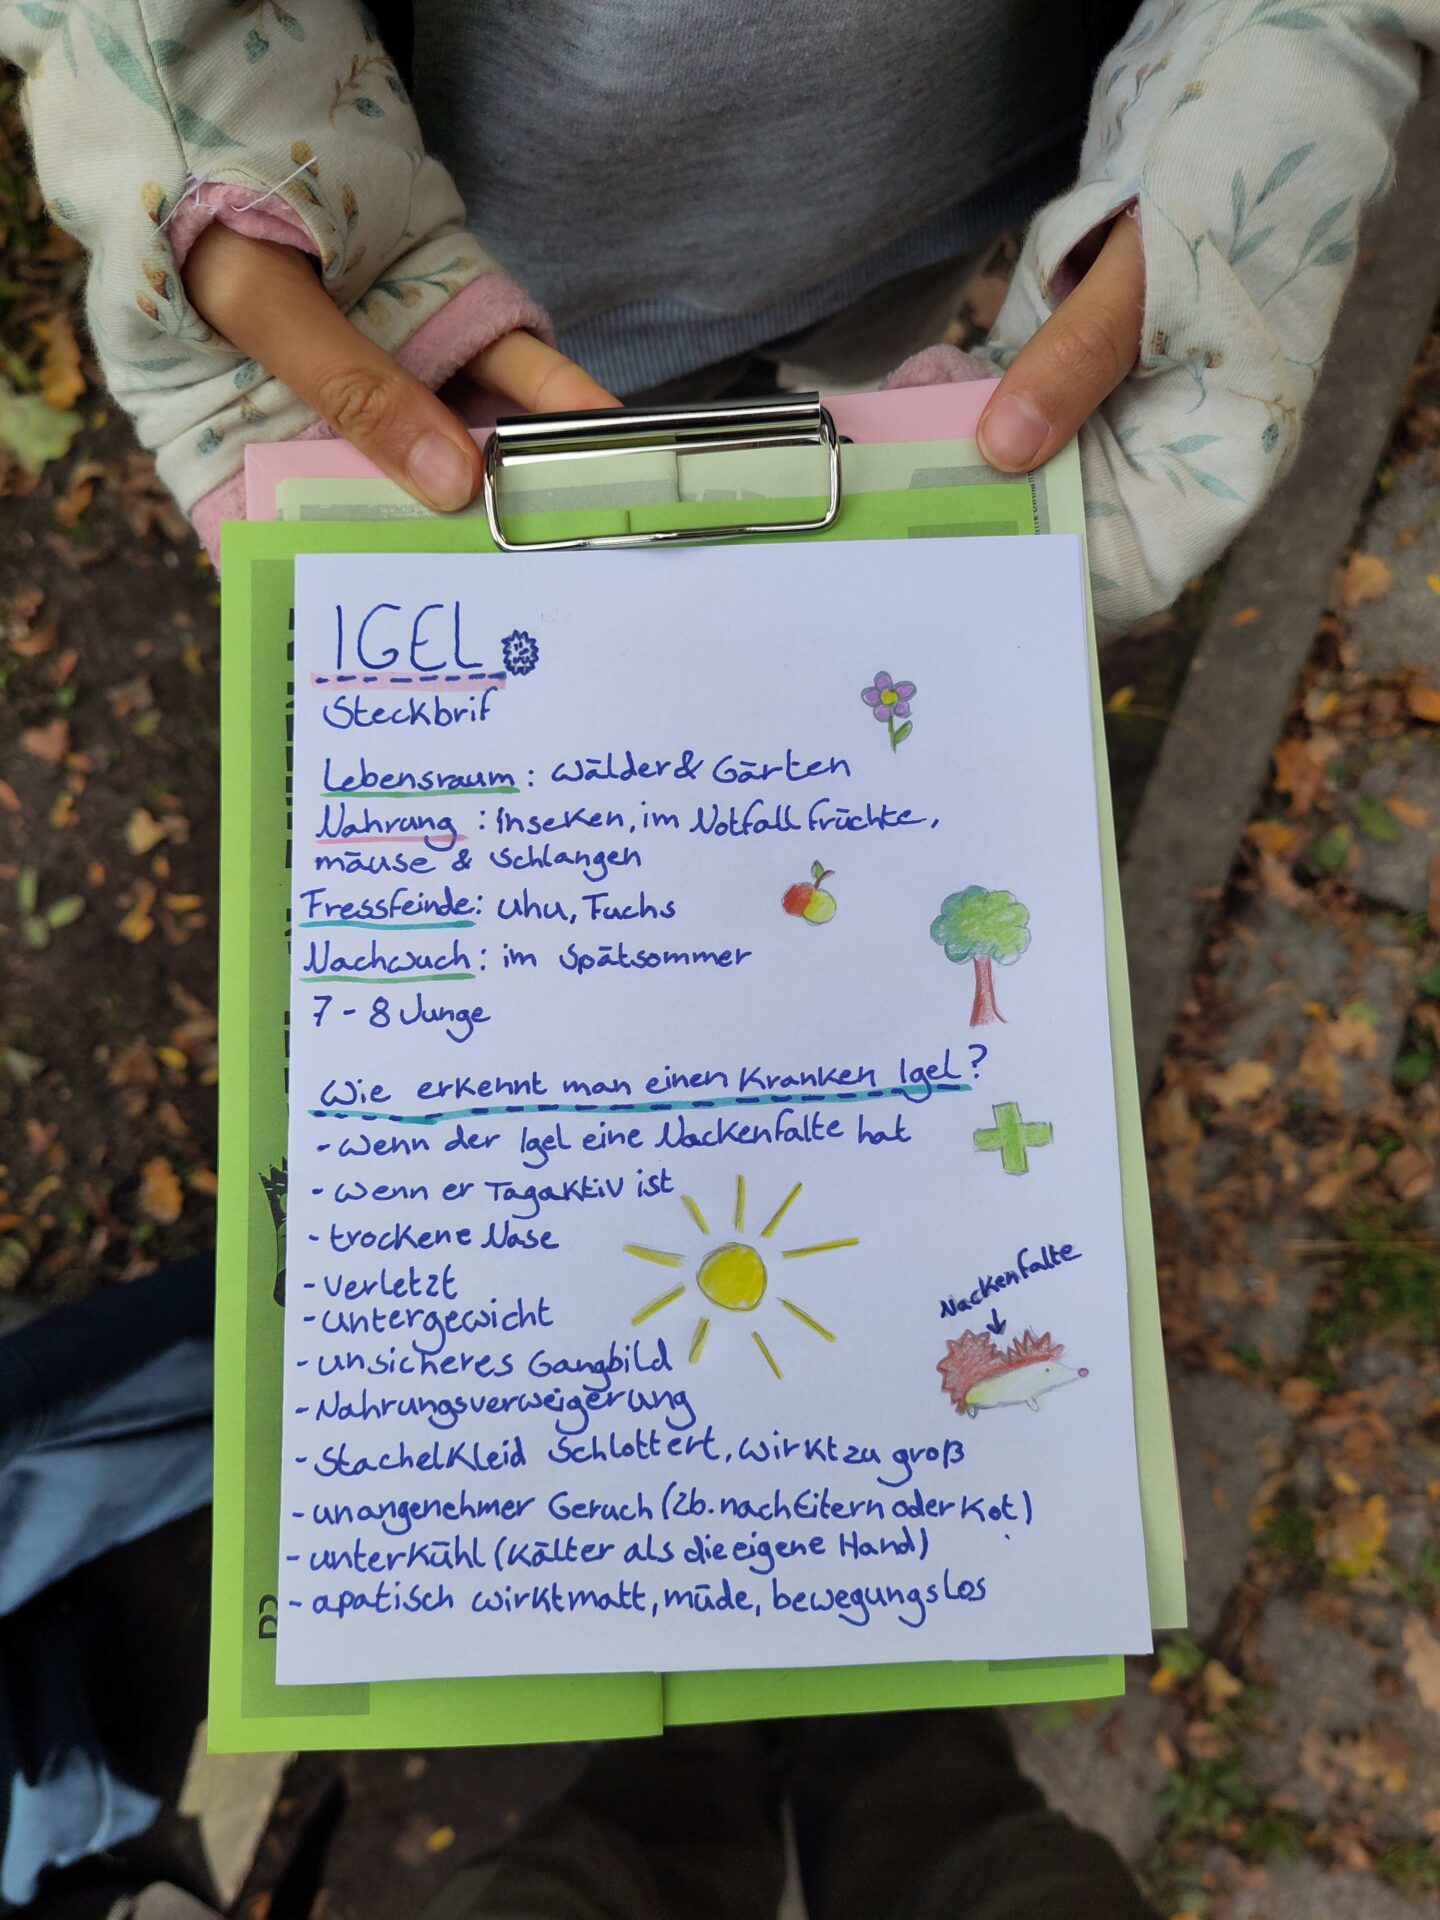 IGEL
Steckbrif
Lebensraum: Wälder & Gärten
Nahrung: Inseken, im Notfall früchte,
mäuse & Schlangen
Fressfeinde: Uhu, Fuchs
Nachwuch: im Spätsommer
7-8 Junge
Wie erkennt man einen Kranken Igel?
- Wenn der Igel eine Nackenfalte hat
- Wenn er Tagaktiv ist
- trockene Nase
- verletzt
- untergewicht
- unsicheres Gangbild
- Nahrungsverweigerung
- Stachelkleid Schlottert, wirkt zu groß
- unangenehmer Geruch (zb. nach Eitern oder Kot)
- unterkühl (Kälter als die eigene Hand)
- apatisch wirkt matt, müde, bewegungslos
Nackenfalte